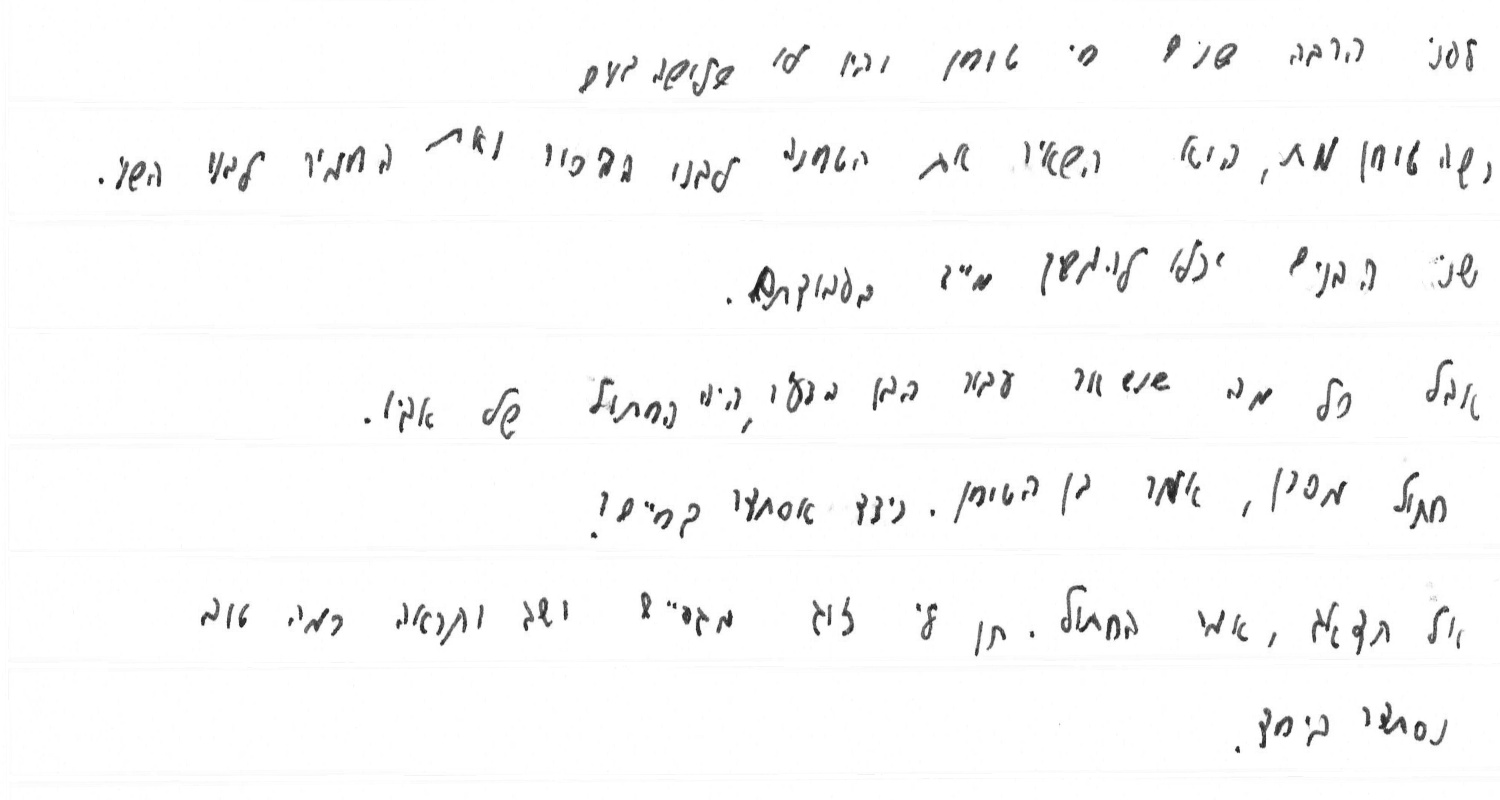 לפני הרבה שנים חי טוחן והיו לו שלושה בנים
כשהטוחן מת, הוא השאיר את הטחנה לבנו הבכור ואת החמור לבנו השני.
שני הבנים יכלו להמשיך מייד בעבודתם.
אבל כל מה שנשאר עבור הבן הצעיר, היה החתול של אביו.
חתול מסכן, אמר בן הטוחן. כיצד אסתדר בחיים?
אל תדאג, אמר החתול. תן לי זוג מגפיים ושק ותראה כמה טוב
נסתדר ביחד.